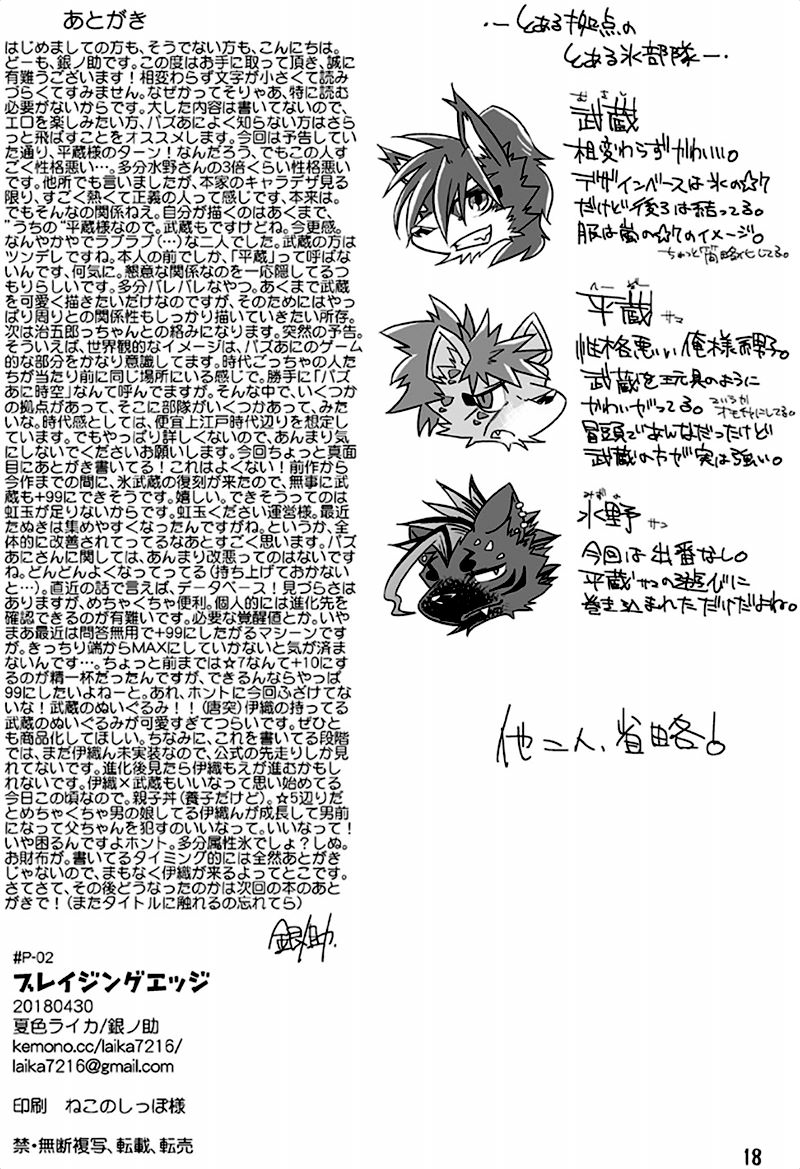 あとがき
はじめましての方も、そうでない方も、こんにちは。
どーも、銀ノ助です。この度はお手に取って頂き、誠に
有難うございます！相変わらず文字が小さくて読み
づらくてすみません。なぜかってそりゃあ、特に読む
必要がないからです。大した内容は書いてないので、
エロを楽しみたい方、バズあによく知らない方はさら
っと飛ばすことをオススメします。今回は予告してい
た通り、平蔵様のターン！なんだろう、でもこの人す
ごく性格悪い…。多分水野さんの3倍くらい性格悪い
です。他所でも言いましたが、本家のキャラデザ見る
限り、すごく熱くて正義の人って感じです、本来は。
でもそんなの関係ねえ。自分が描くのはあくまで、
”うちの”平蔵様なので。武蔵もですけどね。今更感。
なんやかやでラブラブ（…）な二人でした。武蔵の方は
ツンデレですね。本人の前でしか、「平蔵」って呼ばな
いんです、何気に。懇意な関係なのを一応隠してるつ
もりらしいです。多分バレバレなやつ。あくまで武蔵
を可愛く描きたいだけなのですが、そのためにはやっ
ぱり周りとの関係性もしっかり描いていきたい所存。
次は治五郎っちゃんとの絡みになります。突然の予告。
そういえば、世界観的なイメージは、バズあにのゲーム
的な部分をかなり意識してます。時代ごっちゃの人た
ちが当たり前に同じ場所にいる感じで。勝手に「バズ
あに時空」なんて呼んでますが。そんな中で、いくつか
の拠点があって、そこに部隊がいくつかあって、みた
いな。時代感としては、便宜上江戸時代辺りを想定し
ています。でもやっぱり詳しくないので、あんまり気
にしないでくださいお願いします。今回ちょっと真面
目にあとがき書いてる！これはよくない！前作から
今作までの間に、氷武蔵の復刻が来たので、無事に武
蔵も+99にできそうです。嬉しい。できそうってのは
虹玉が足りないからです。虹玉ください運営様。最近
たぬきは集めやすくなったんですがね。というか、全
体的に改善されてってるなあとすごく思います。バズ
あにさんに関しては、あんまり改悪ってのはないです
ね。どんどんよくなってってる（持ち上げておかない
と…）。直近の話で言えば、データベース！見づらさは
ありますが、めちゃくちゃ便利。個人的には進化先を
確認できるのが有難いです。必要な覚醒値とか。いや
まあ最近は問答無用で+99にしたがるマシーンです
が。きっちり端からMAXにしていかないと気が済ま
ないんです…。ちょっと前までは☆7なんて+10にす
るのが精一杯だったんですが、できるんならやっぱ
99にしたいよねーと。あれ、ホントに今回ふざけてな
いな！武蔵のぬいぐるみ！！（唐突）伊織の持ってる
武蔵のぬいぐるみが可愛すぎてつらいです。ぜひと
も商品化してほしい。ちなみに、これを書いてる段階
では、まだ伊織ん未実装なので、公式の先走りしか見
れてないです。進化後見たら伊織もえが進むかもし
れないです。伊織×武蔵もいいなって思い始めてる
今日この頃なので。親子丼（養子だけど）。☆5辺りだ
とめちゃくちゃ男の娘してる伊織んが成長して男前
になって父ちゃんを犯すのいいなって。いいなって！
いや困るんですよホント。多分属性氷でしょ？しぬ。
お財布が。書いてるタイミング的には全然あとがき
じゃないので、まもなく伊織が来るよってとこです。
さてさて、その後どうなったのかは次回の本のあと
がきで！（またタイトルに触れるの忘れてら）
銀ノ助.
#P-02
ブレイジングエッジ
20180430
夏色ライカ/銀ノ助
kemono.cc/laika7216/
laika7216@gmail.com
印刷　ねこのしっぽ様
禁・無断複写、転載、転売
・ーとある拠点の
とある氷部隊ー・
むさし
武蔵
相変わらずかわいい。
デザインベースは氷の☆7
だけど後ろは結ってる。
服は嵐の☆7のイメージ。
ちょっと簡略化してる。
へーぞー
平蔵サマ
性格悪い俺様男子。
武蔵を玩具のように
かわいがってる。というかオモチャにしてる。
冒頭であんなだったけど
武蔵の方が実は強い。
みずの
水野サン
今回は出番なし。
平蔵サマの遊びに
巻き込まれただけだよね。
他二人、省略！
18